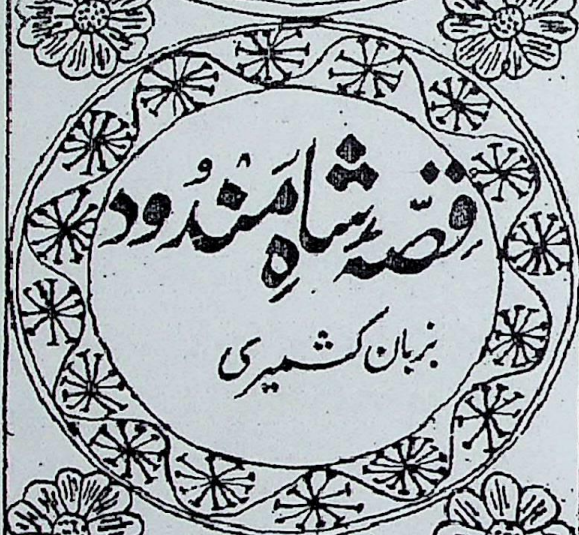 قِصّۂ شاہِ مَنْدُود
بزبان کشمیری